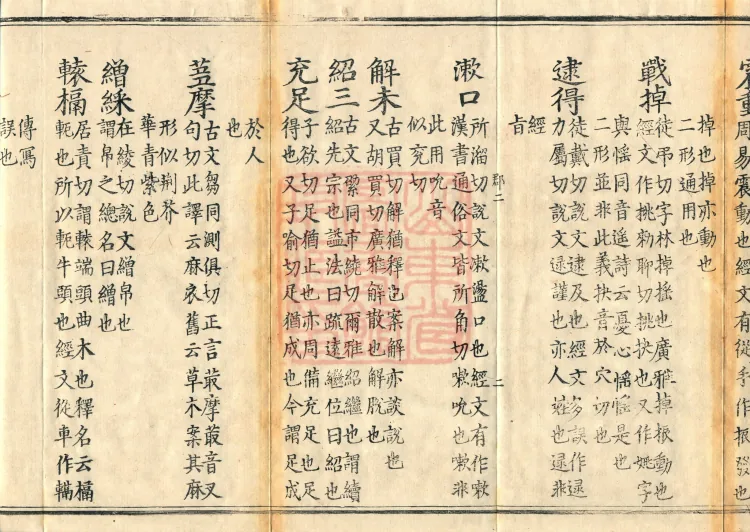 周易震動也經文有從手作振發也
掉也掉亦動也
二形通用也
戰掉
徒弔切字林掉搖也廣雅掉振動也
經文作挑勑聊切挑抉也又作姚字
與愮同音遙詩云憂心愮愮是也
二形並非此義抉音於穴切也
逮得
徒戴切說文逮及也經文多誤作逯
力屬切說文逯謹也亦人姓也逯非
經
旨
郡二
二
漱口
所溜切說文漱盪口也經文有作嗽
漢書通俗文皆所角切嗽吮也嗽非
此用吮音
似兖切
解未
古買切解猶釋也案解亦談說也
又胡買切廣雅解散也解脫也
紹三
古文同市繞切爾雅紹繼也謂續
紹先宗也謚法曰疏遠繼位曰紹也
充足
子欲切足猶止也亦周備充足也足
得也又子喻切足猶成也今謂足成
於人
也
摩
古文芻同測俱切正言菆摩菆音叉
句切此譯云麻衣舊云草木案其麻
形似荆芥
華青紫色
繒綵
在綾切說文繒帛也
謂帛之總名曰繒也
轅槅
居責切謂轅端頭曲木也釋名云槅
軛也所以軛牛頭也經文從車作
傳寫
誤也